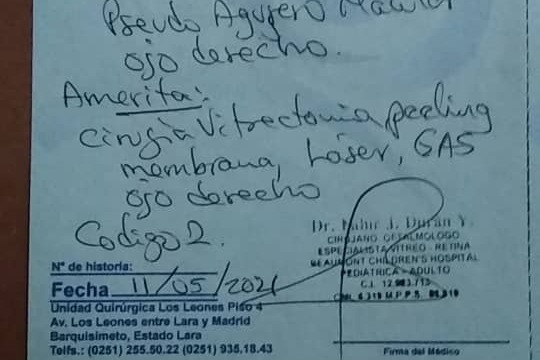 Pseudo Agujero Macular
ojo derecho.
Amerita:
cirugía Vitrectomia peeling
membrana, Láser, GAS
ojo derecho
Codigo 2.
Dr. J. Durán V.
CIRUJANO OFTALMOLOGO
ESPECIALISTA VITREO - RETINA
BEAUMONT CHILDREN'S HOSPITAL
PEDIATRICA - ADULTO
N° de historia:
Fecha 11/05/2021
Unidad Quirúrgica Los Leones Piso 4
Av. Los Leones entre Lara y Madrid
Barquisimeto, Estado Lara
Telfs.: (0251) 255.50.22 (0251) 935.18.43
Firma del Médico